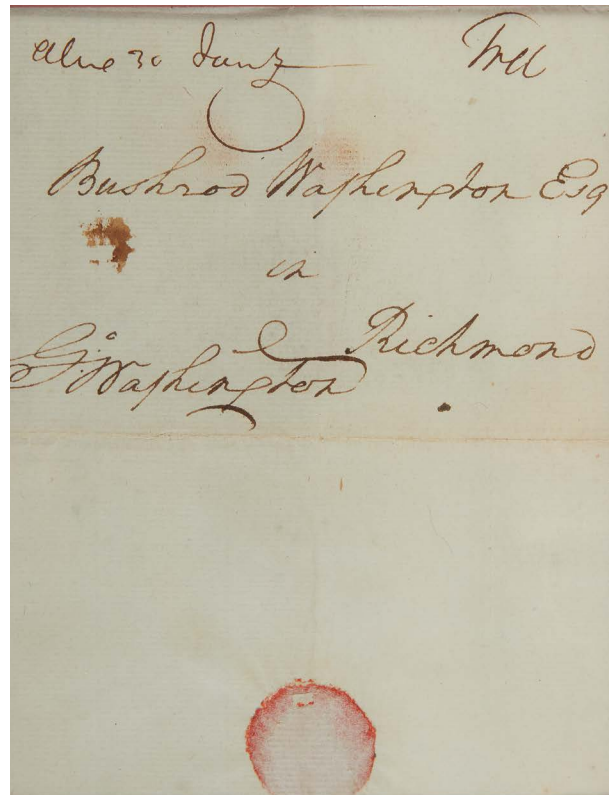 Alex 30 Jany Free
Bushrod Washington Esq
in
Richmond
Go: Washington